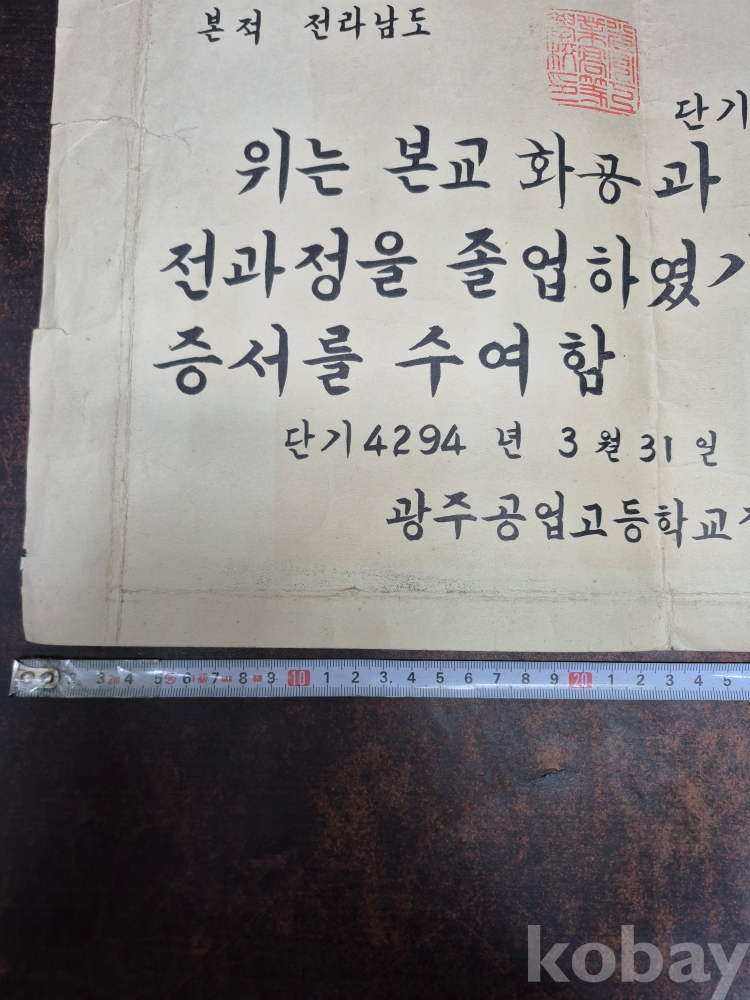 본적 전라남도
단기
위는 본교 화공과
전과정을 졸업하였기
증서를 수여함
단기 4294 년 3 월 31 일
광주공업고등학교
3 4 5 6 7 8 9 10 1 2 3 4 5 6 7 8 9 20 1 2 3 4 5
kobay